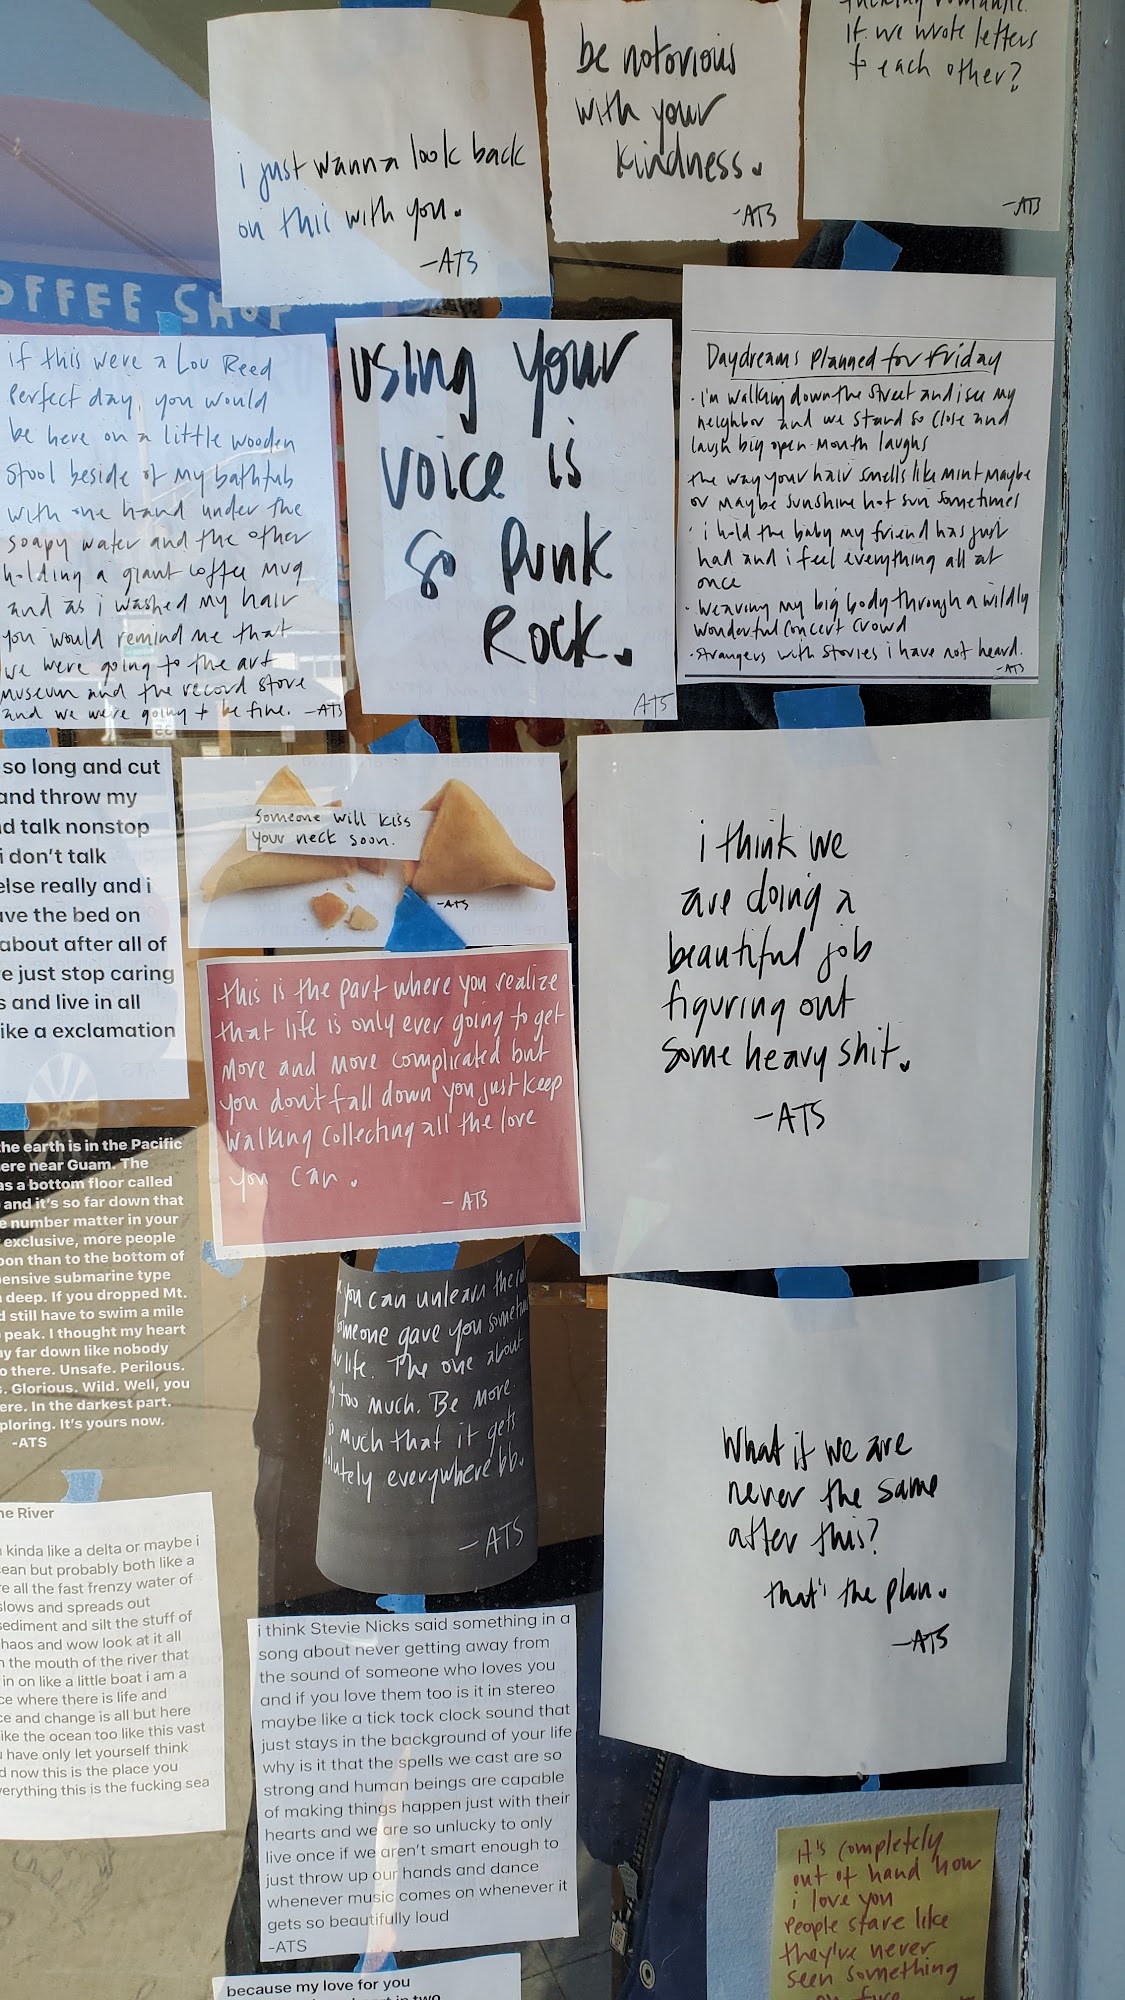 i just wanna look back
on this with you.
-ATS
be notorious
with your
kindness.
-ATS
fucking romantic
if we wrote letters
to each other?
-ATS
OFFEE SHOP
if this were a Lou Reed
Perfect day, you would
be here on a little wooden
stool beside of my bathtub
with one hand under the
soapy water and the other
holding a giant coffee mug
and as i washed my hair
you would remind me that
we were going to the art
museum and the record store
and we were going to be fine. -ATS
using your
voice is
so Punk
Rock.
ATS
Daydreams Planned for Friday
· i'm walking down the street and i see my
neighbor and we stand so close and
laugh big open-mouth laughs
the way your hair smells like mint maybe
or maybe sunshine hot sun sometimes
· i hold the baby my friend has just
had and i feel everything all at
once
· weaving my big body through a wildly
wonderful concert crowd
· strangers with stories i have not heard.
-ATS
so long and cut
and throw my
d talk nonstop
i don't talk
else really and i
ave the bed on
about after all of
e just stop caring
s and live in all
ike a exclamation
someone will kiss
your neck soon.
-ATS
this is the part where you realize
that life is only ever going to get
more and more complicated but
you don't fall down you just keep
walking collecting all the love
you can.
- ATS
i think we
are doing a
beautiful job
figuring out
some heavy shit.
-ATS
the earth is in the Pacific
ere near Guam. The
as a bottom floor called
and it's so far down that
e number matter in your
exclusive, more people
oon than to the bottom of
pensive submarine type
deep. If you dropped Mt.
d still have to swim a mile
peak. I thought my heart
y far down like nobody
o there. Unsafe. Perilous.
s. Glorious. Wild. Well, you
ere. In the darkest part.
ploring. It's yours now.
-ATS
you can unlearn the
someone gave you
life. The one about
too much. Be more.
so much that it gets
olutely everywhere bb.
- ATS
What if we are
never the same
after this?
that's the plan.
-ATS
he River
kinda like a delta or maybe i
cean but probably both like a
e all the fast frenzy water of
slows and spreads out
sediment and silt the stuff of
haos and wow look at it all
n the mouth of the river that
in on like a little boat i am a
ce where there is life and
ce and change is all but here
ike the ocean too like this vast
u have only let yourself think
d now this is the place you
verything this is the fucking sea
i think Stevie Nicks said something in a
song about never getting away from
the sound of someone who loves you
and if you love them too is it in stereo
maybe like a tick tock clock sound that
just stays in the background of your life
why is it that the spells we cast are so
strong and human beings are capable
of making things happen just with their
hearts and we are so unlucky to only
live once if we aren't smart enough to
just throw up our hands and dance
whenever music comes on whenever it
gets so beautifully loud
-ATS
it's completely
out of hand how
i love you
people stare like
they've never
seen something
on fire
because my love for you